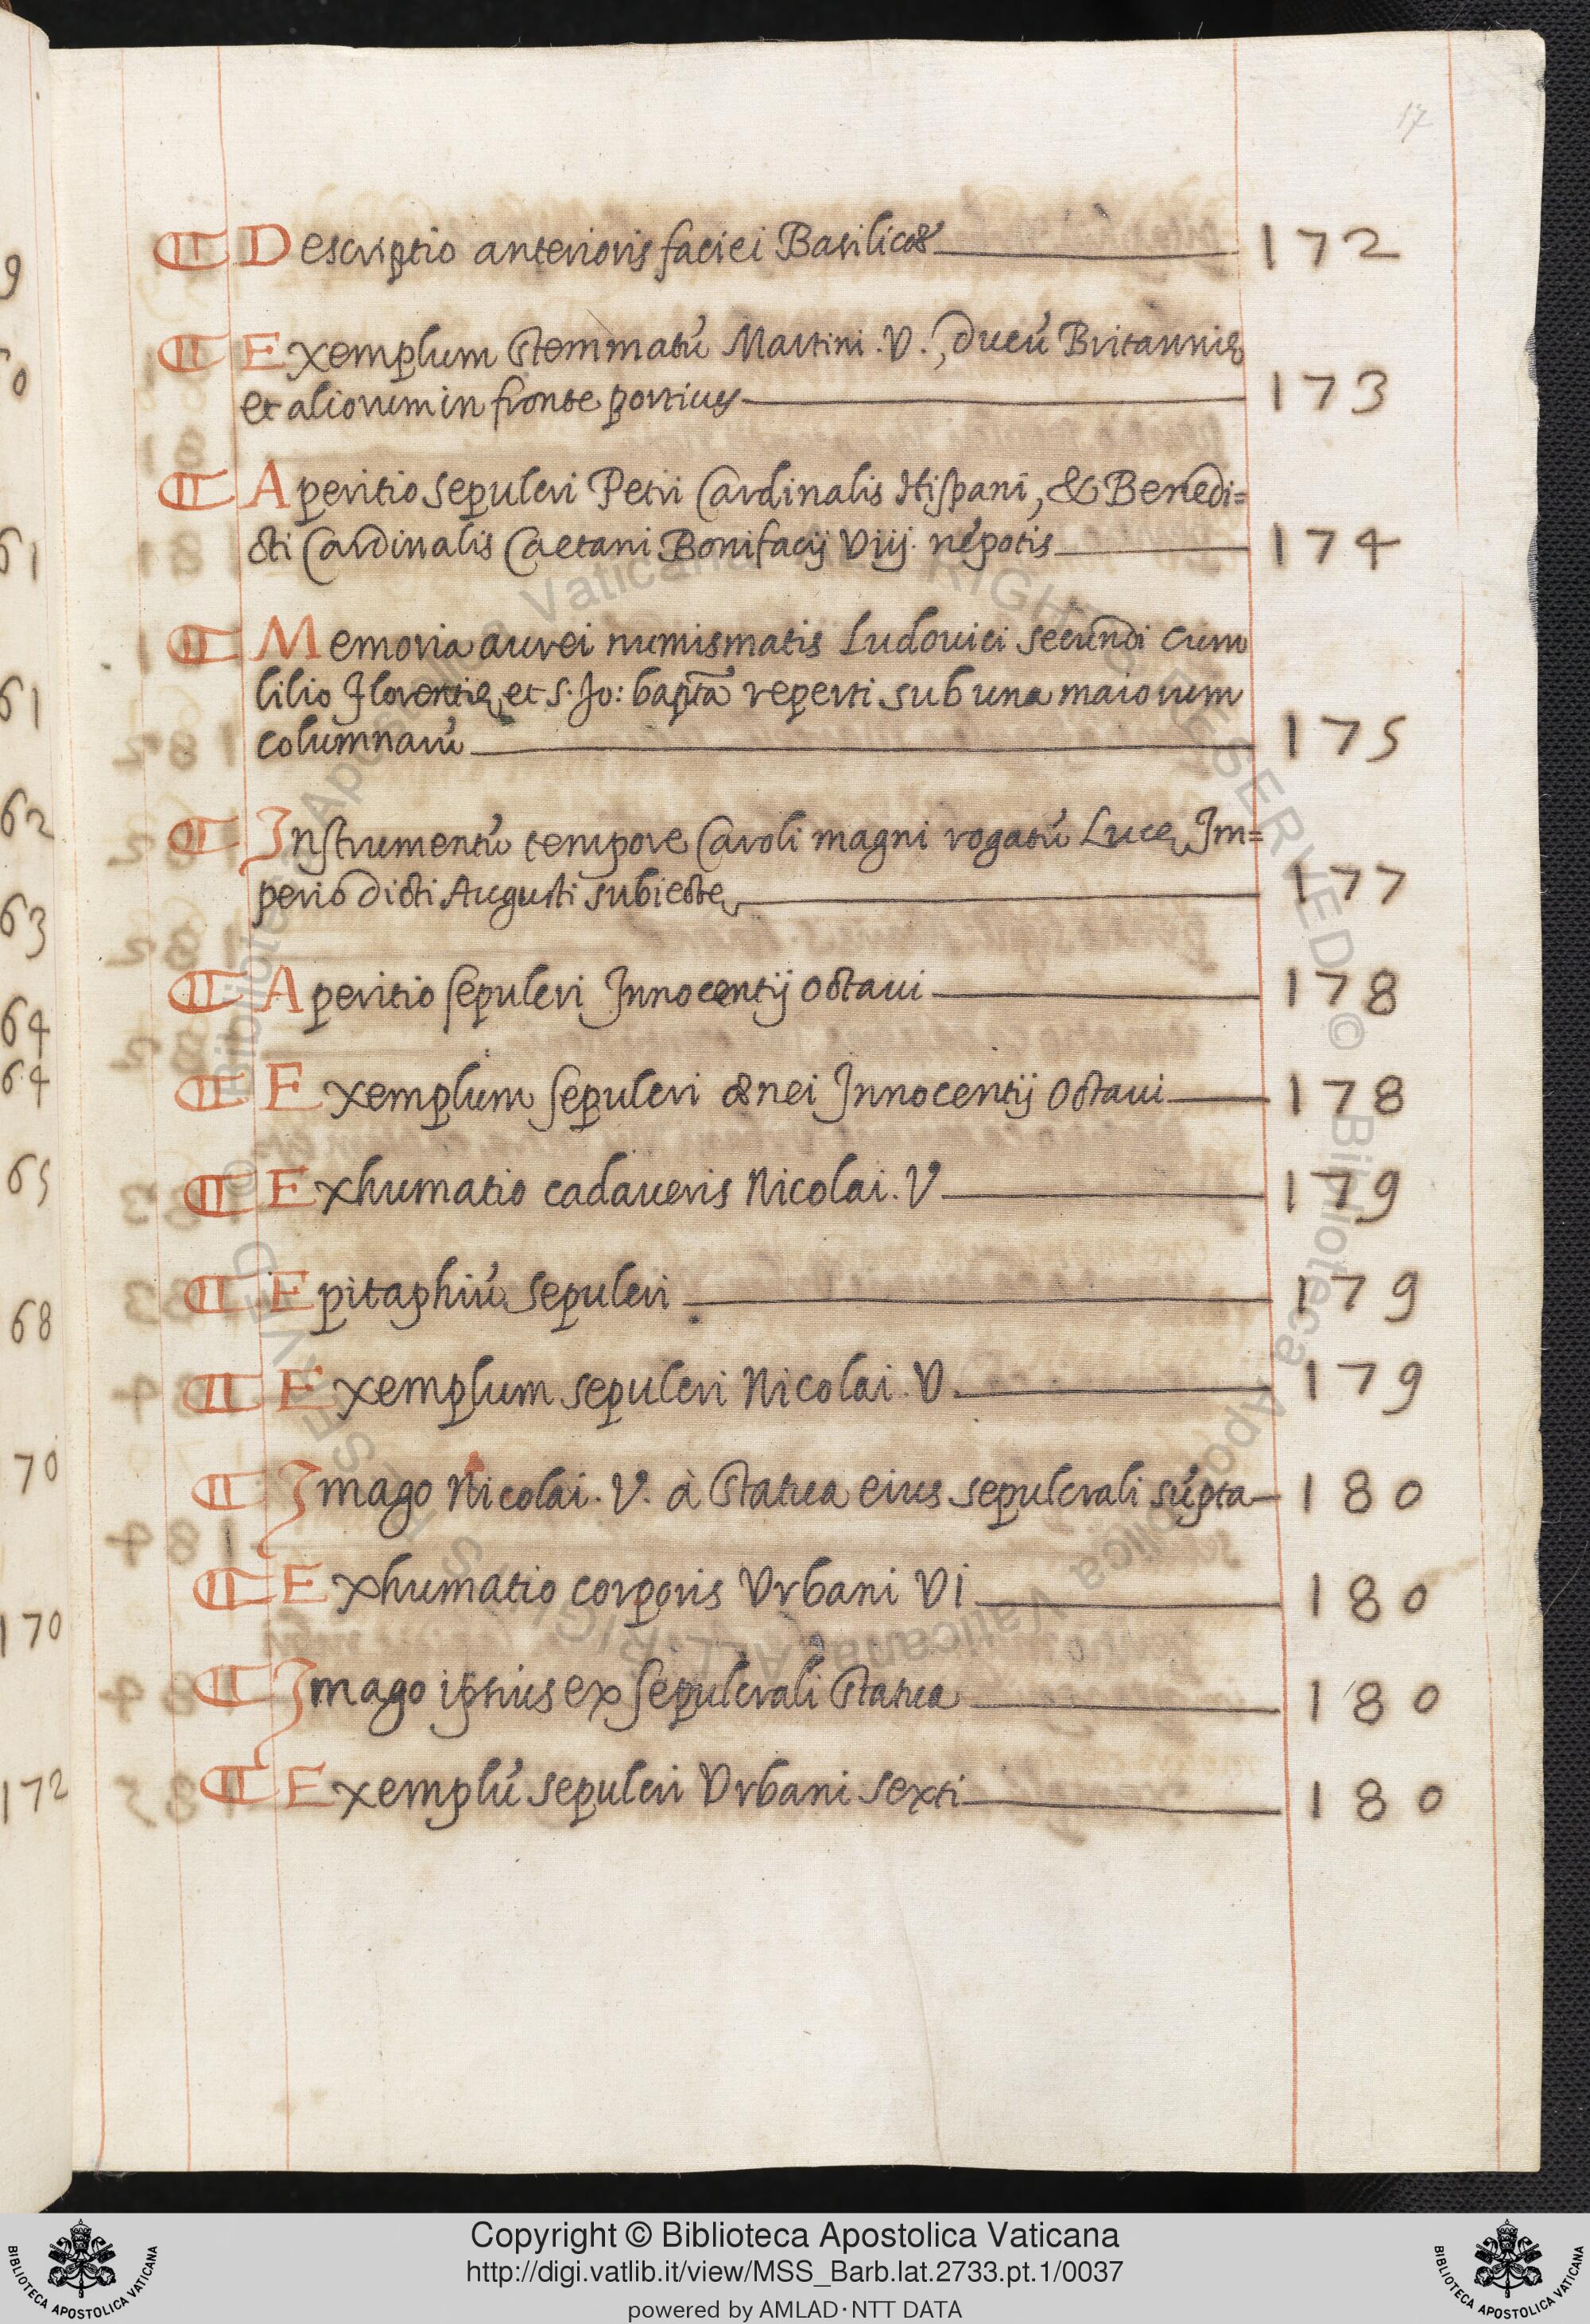 17
¶ Descriptio anterioris faciei Basilicæ 172
¶ Exemplum stemmatũ Martini .V., ducũ Britannię
et aliorum in fronte porticus 173
¶ Aperitio sepulcri Petri Cardinalis Hispani, & Benedi=
cti Cardinalis Caetani Bonifacij Viij. nepotis 174
¶ Memoria aurei numismatis Ludouici secundi cum
lilio Florentię, et S. Jo: baptã reperti sub una maiorum
columnarũ 175
¶ Instrumentũ tempore Caroli magni rogatũ Lucę Im=
perio dicti Augusti subiectę 177
¶ Aperitio sepulcri Innocentij octaui 178
¶ Exemplum sepulcri ænei Innocentij Octaui 178
¶ Exhumatio cadaueris Nicolai .V 179
¶ Epitaphiũ sepulcri 179
¶ Exemplum sepulcri Nicolai .V. 179
¶ Imago Nicolai .V. à statua eius sepulcrali sũpta 180
¶ Exhumatio corporis Vrbani VI 180
¶ Imago ipsius ex sepulcrali statua 180
¶ Exemplũ sepulcri Vrbani sexti 180
61
61
62
63
64
64
65
68
70
170
172
Copyright © Biblioteca Apostolica Vaticana
http://digi.vatlib.it/view/MSS_Barb.lat.2733.pt.1/0037
powered by AMLAD·NTT DATA
BIBLIOTECA APOSTOLICA VATICANA
BIBLIOTECA APOSTOLICA VATICANA